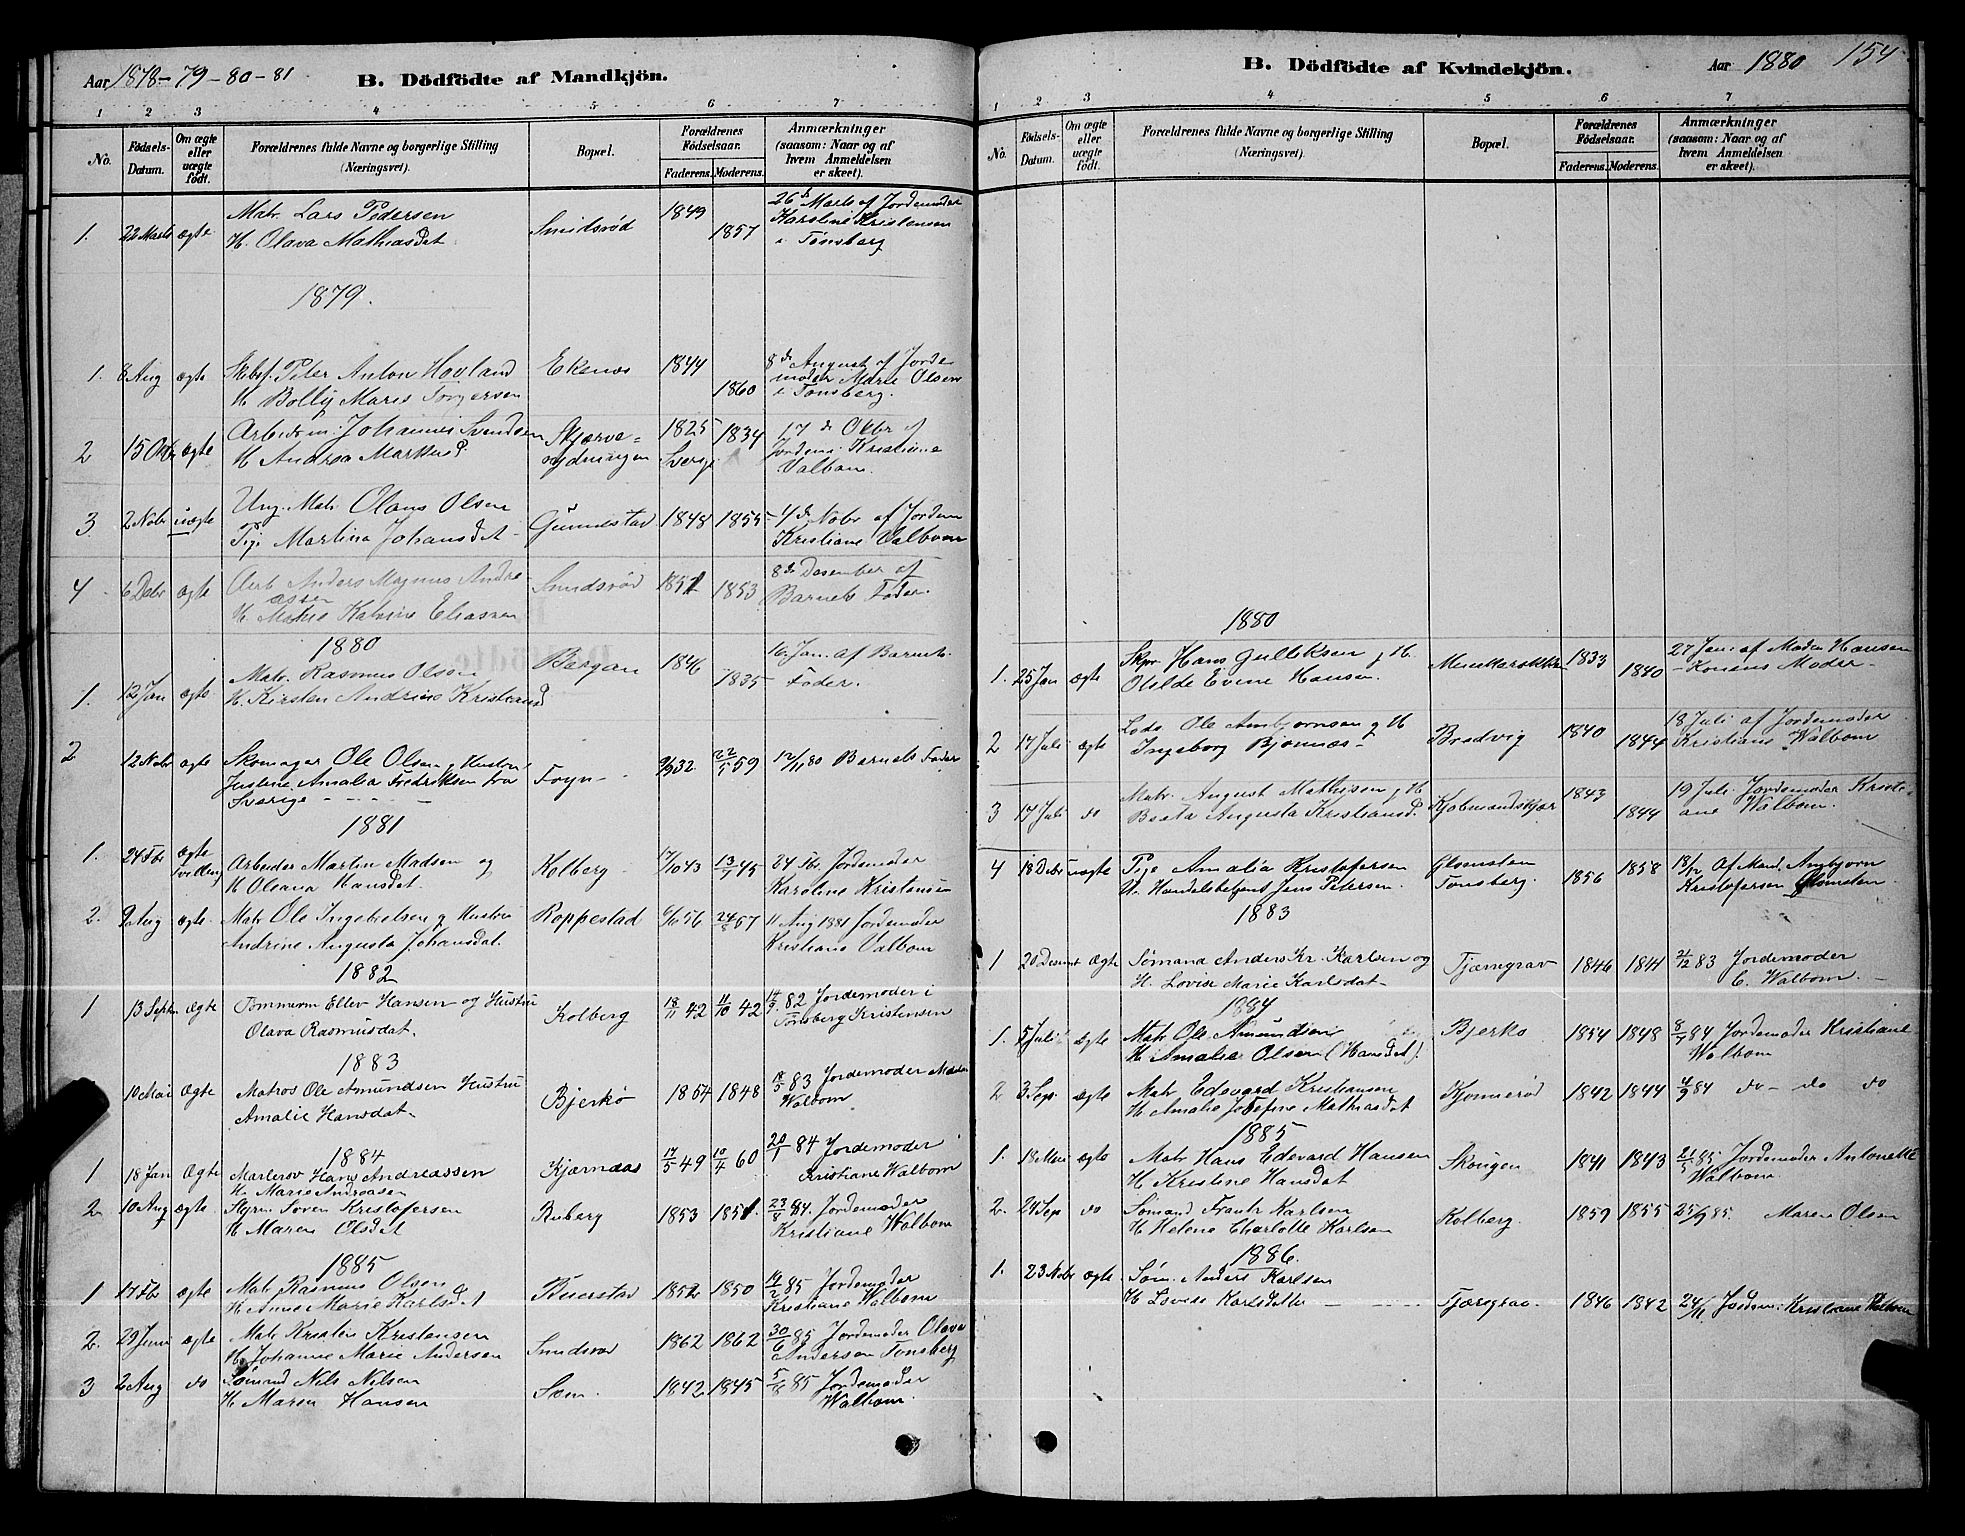 Aar 1878-79-80-81
B. Dödfödte af Mandkjön.
1 2 3 4 5 6 7
No. Födsels-Datum. Om ægte eller uægte födt. Forældrenes fulde Navne og borgerlige Stilling (Næringsvei). Bopæl. Forældrenes Födselsaar. Faderens. Moderens. Anmærkninger (saasom: Naar og af hvem Anmeldelsen er skeet).
1. 22 Marts ægte Matr. Lars Pedersen Smidsrød 1849 26d Marts af Jordemoder
H. Olava Mathiasdat 1857 Karoline Kristensen
i Tønsberg
1879.
1. 8 Aug ægte Skbef. Peter Anton Hovland Ekenes 1844 8de August af Jorde
H. Bolly Marie Torgersen 1860 moder Marie Olsen
i Tønsberg.
2 15 Okbr ægte Arbeidsm. Johannes Svendsen Skjærve= 1825 1834 17de Okbr af
H Andrea Markus D. rydningen Sverige Jordem. Kristiane
Valbom.
3. 2 Nobr uægte Ung. Matr Olaus Olsen Gunnestad 1848 1855 4de Nobr af Jordem
Pige Martina Johansdat Kristiane Valbom
4 6 Debr ægte Arb Anders Magnus Andre Smidsrød 1851 1853 8de Desember af
assen Barnets Fader.
H. Mathie Katrine Eliassen
1880
1. 12 Jan ægte Matr. Rasmus Olsen Bergan 1846 16. Jan. af Barnets
H. Kirsten Andrine Kristiansd 1835 Fader.
2 12 Nobr ægte Skomager Ole Olsen og Hustru Foyn 32 22/5 59 12/11 80 Barnets Fader
Justine Amalia Fredriksen fra
Sverige
1881
1. 24 Fbr ægte Arbeider Martin Madsen og Kolberg 17/10 43 13/1 45 24 Fbr. Jordemoder
tvilling H Oleana Hansdat. Karoline Kristensen
2. 9 Aug ægte Matr Ole Ingebretsen og Hustru Roppestad 6/11 56 24/8 57 11 Aug 1881 Jordemoder
Andrine Augusta Johansdat. Kristiane Valbom
1882
1 13 Septr Ægte Tømmerm Ellev Hansen og Hustru Kolberg 18/11 42 11/10 42 14/9. 82 Jordemoder i
Olava Rasmusdat. Tønsberg Kristensen
1883
10 Mai Ægte Matros Ole Amundsen Hustru Bjerkø 1854 1848 18/5 83 Jordemoder
Amalie Hansdat. Walbom
1884
1 18 Jan Ægte Hans Andreassen Kjærnaas 17/5 49 10/4 60 20/1 84 Jordemoder
H. Marie Andreasen Kristiane Walbom
2. 10 Aug ægte. Styrm Søren Kristofersen Ruberg 1853 1851. 23/8 84. Jordemoder
H Maren Olsdat Kristiane Walbom
1885
1 17 Fbr ægte Matr Rasmus Olsen Buerstad 1852 1850 19/2 85 Jordemoder
H. Anne Marie Karlsdat Kristiane Walbom
2. 29 Juni ægte Matr Kristen Kristensen Smidsrød 1862 1862 30/6 85 Jordemoder Olava
H. Johanne Marie Andersen Andersen Tønsberg
3 2 Aug do Sømand Nils Nilsen Sem. 1842 1845 5/8 85 Jordemoder
H. Maren Hansen Walbom
B. Dödfödte af Kvindekjön.
Aar 1880 154
1 2 3 4 5 6 7
No. Födsels-Datum. Om ægte eller uægte födt. Forældrenes fulde Navne og borgerlige Stilling (Næringsvei). Bopæl. Forældrenes Födselsaar. Faderens. Moderens. Anmærkninger (saasom: Naar og af hvem Anmeldelsen er skeet).
1880
1. 25 Jan ægte Skpr Hans Gulliksen og H. 1833 27 Jan. af Madm Hansen
Otilde Evine Hansen. 1840 Konens Moder
2 17 Juli ægte Lods Ole Ambjørnsen og H Bredvig 1840 18 Juli af Jordemoder
Ingeborg Bjønnes 1844 Kristiane Walbom
3 17 Juli do Matr. August Mathisen og H Kjøbmandskjær 1843 19 Juli Jordemoder Kristi-
Beata Augusta Kristiansd. 1844 ane Walbom.
4 18 Debr uægte Pige Amalia Kristofersen Glomsten 1858 18/12 Af Mand. Ambjørn
U. Handelsbetjent Jens Petersen. Tønsberg. 1856 Kristofersen Glomsten
1883
1 20 Desembr Ægte Sømand Anders Kr. Karlsen og Tjæregrav 1846 1841 21/12 83 Jordemoder
H. Lovise Marie Karlsdat C. Walbom.
1884
1. 5 Juli ægte Matr Ole Amundsen Bjerkø 1854 1848 8/7 84 Jordemoder Kristiane
H. Amalia Olsen (Hansdat). Walbom
2 3 Sep. ægte Matr Edevard Kristiansen Kjønnerød 1842 1844 4/9 84 do - do do
H. Amalie Josefine Mathiasdat
1885
1. 18 Mai ægte Matr Hans Edevard Hansen Skougen 1841 1843 21/5 85 Jordemoder Antonette
H Kristine Hansdat Walbom.
2. 24 Sep do Sømand Frantz Karlsen Kolberg. 1859 1855 25/9 85. Maren Olsen
H Helene Charlotte Karlsen
1886.
1. 23 Nobr ægte Søm. Anders Karlsen
H Lovise Karlsdatter Tjæregrav 1846 1842 24/11 Jordem: Kristiane Walbom